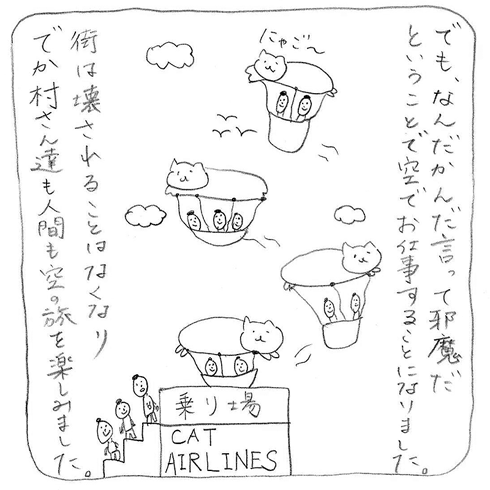 でも、なんだかんだ言って邪魔だ
ということで空でお仕事することになりました。
にゃご〜
街は壊されることはなくなり
でか村さん達も人間も空の旅を楽しみました。
乗り場
CAT
AIRLINES